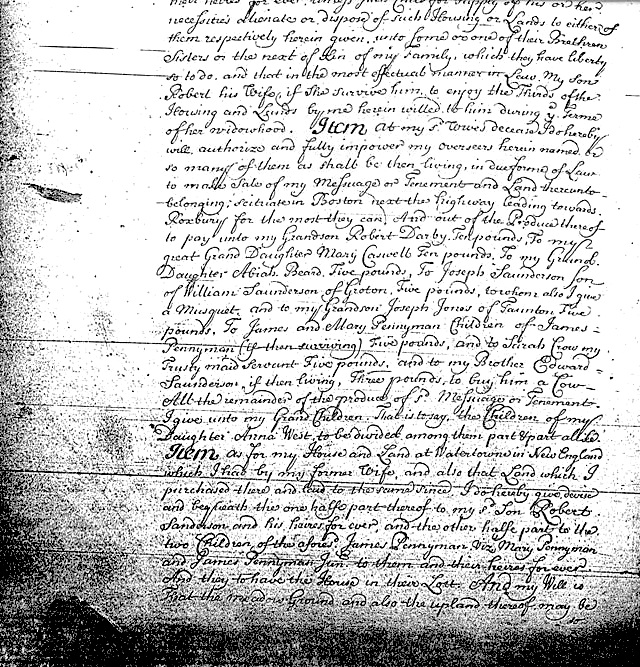 their heires for ever, unless such Cause for supply of his or her
necessities alienate or dispose of such Housing or Lands to either of
them respectively herein given, unto some or one of their Brethren
Sisters or the next of Kin of my Family, which they have liberty
so to do, and that in the most effectual manner in Law. My son
Robert his Wife, if she survive him, to enjoy the Thirds of the
Housing and Lands by me herein willed to him during ye Terme
of her widowhood. Item At my sd Wives decease I do hereby
will, authorize and fully impower my overseers herein named, or
so many of them as shall be then living, in due forme of Law
to make Sale of my Messuage or Tenement and Land thereunto
belonging, scituate in Boston next the highway leading towards
Roxbury for the most they can, And out of the Produce thereof
to pay unto my Grandson Robert Darby Ten pounds, To my
great Grand Daughter Mary Caswell Ten pounds, To my Grand
Daughter Abiah Beard, Five pounds, To Joseph Saunderson son
of William Saunderson, of Groton, Five pounds, to whom also I give
a Musquet, and to my Grandson Joseph Jones of Taunton Five
pounds, To James and Mary Pennyman Children of James
Pennyman (if then surviving) Five pounds, and to Sarah Crow my
Trusty maid Servant Five pounds, and to my Brother Edward
Saunderson, if then living, Three pounds, to buy him a Cow
All the remainder of the produce of sd Messuage or Tenement
I give unto my Grand Children, That is to say, the Children of my
Daughter Anna West, to be divided among them part & part alike.
Item As for my House and Land at Watertowne in New England
which I had by my former Wife, and also that Land which I
purchased there and laid to the same since, I do hereby give, devise
and bequeath the one halfe part thereof to my sd Son Robert
Sanderson and his heires for ever, and the other halfe part to the
two Children of the aforesd James Pennyman Viz. Mary Pennyman
and James Pennyman Junr. to them and their heires for ever
And they to have the House in their Lott. And my Will is
That the meadow Ground and also the upland thereof, may be
so